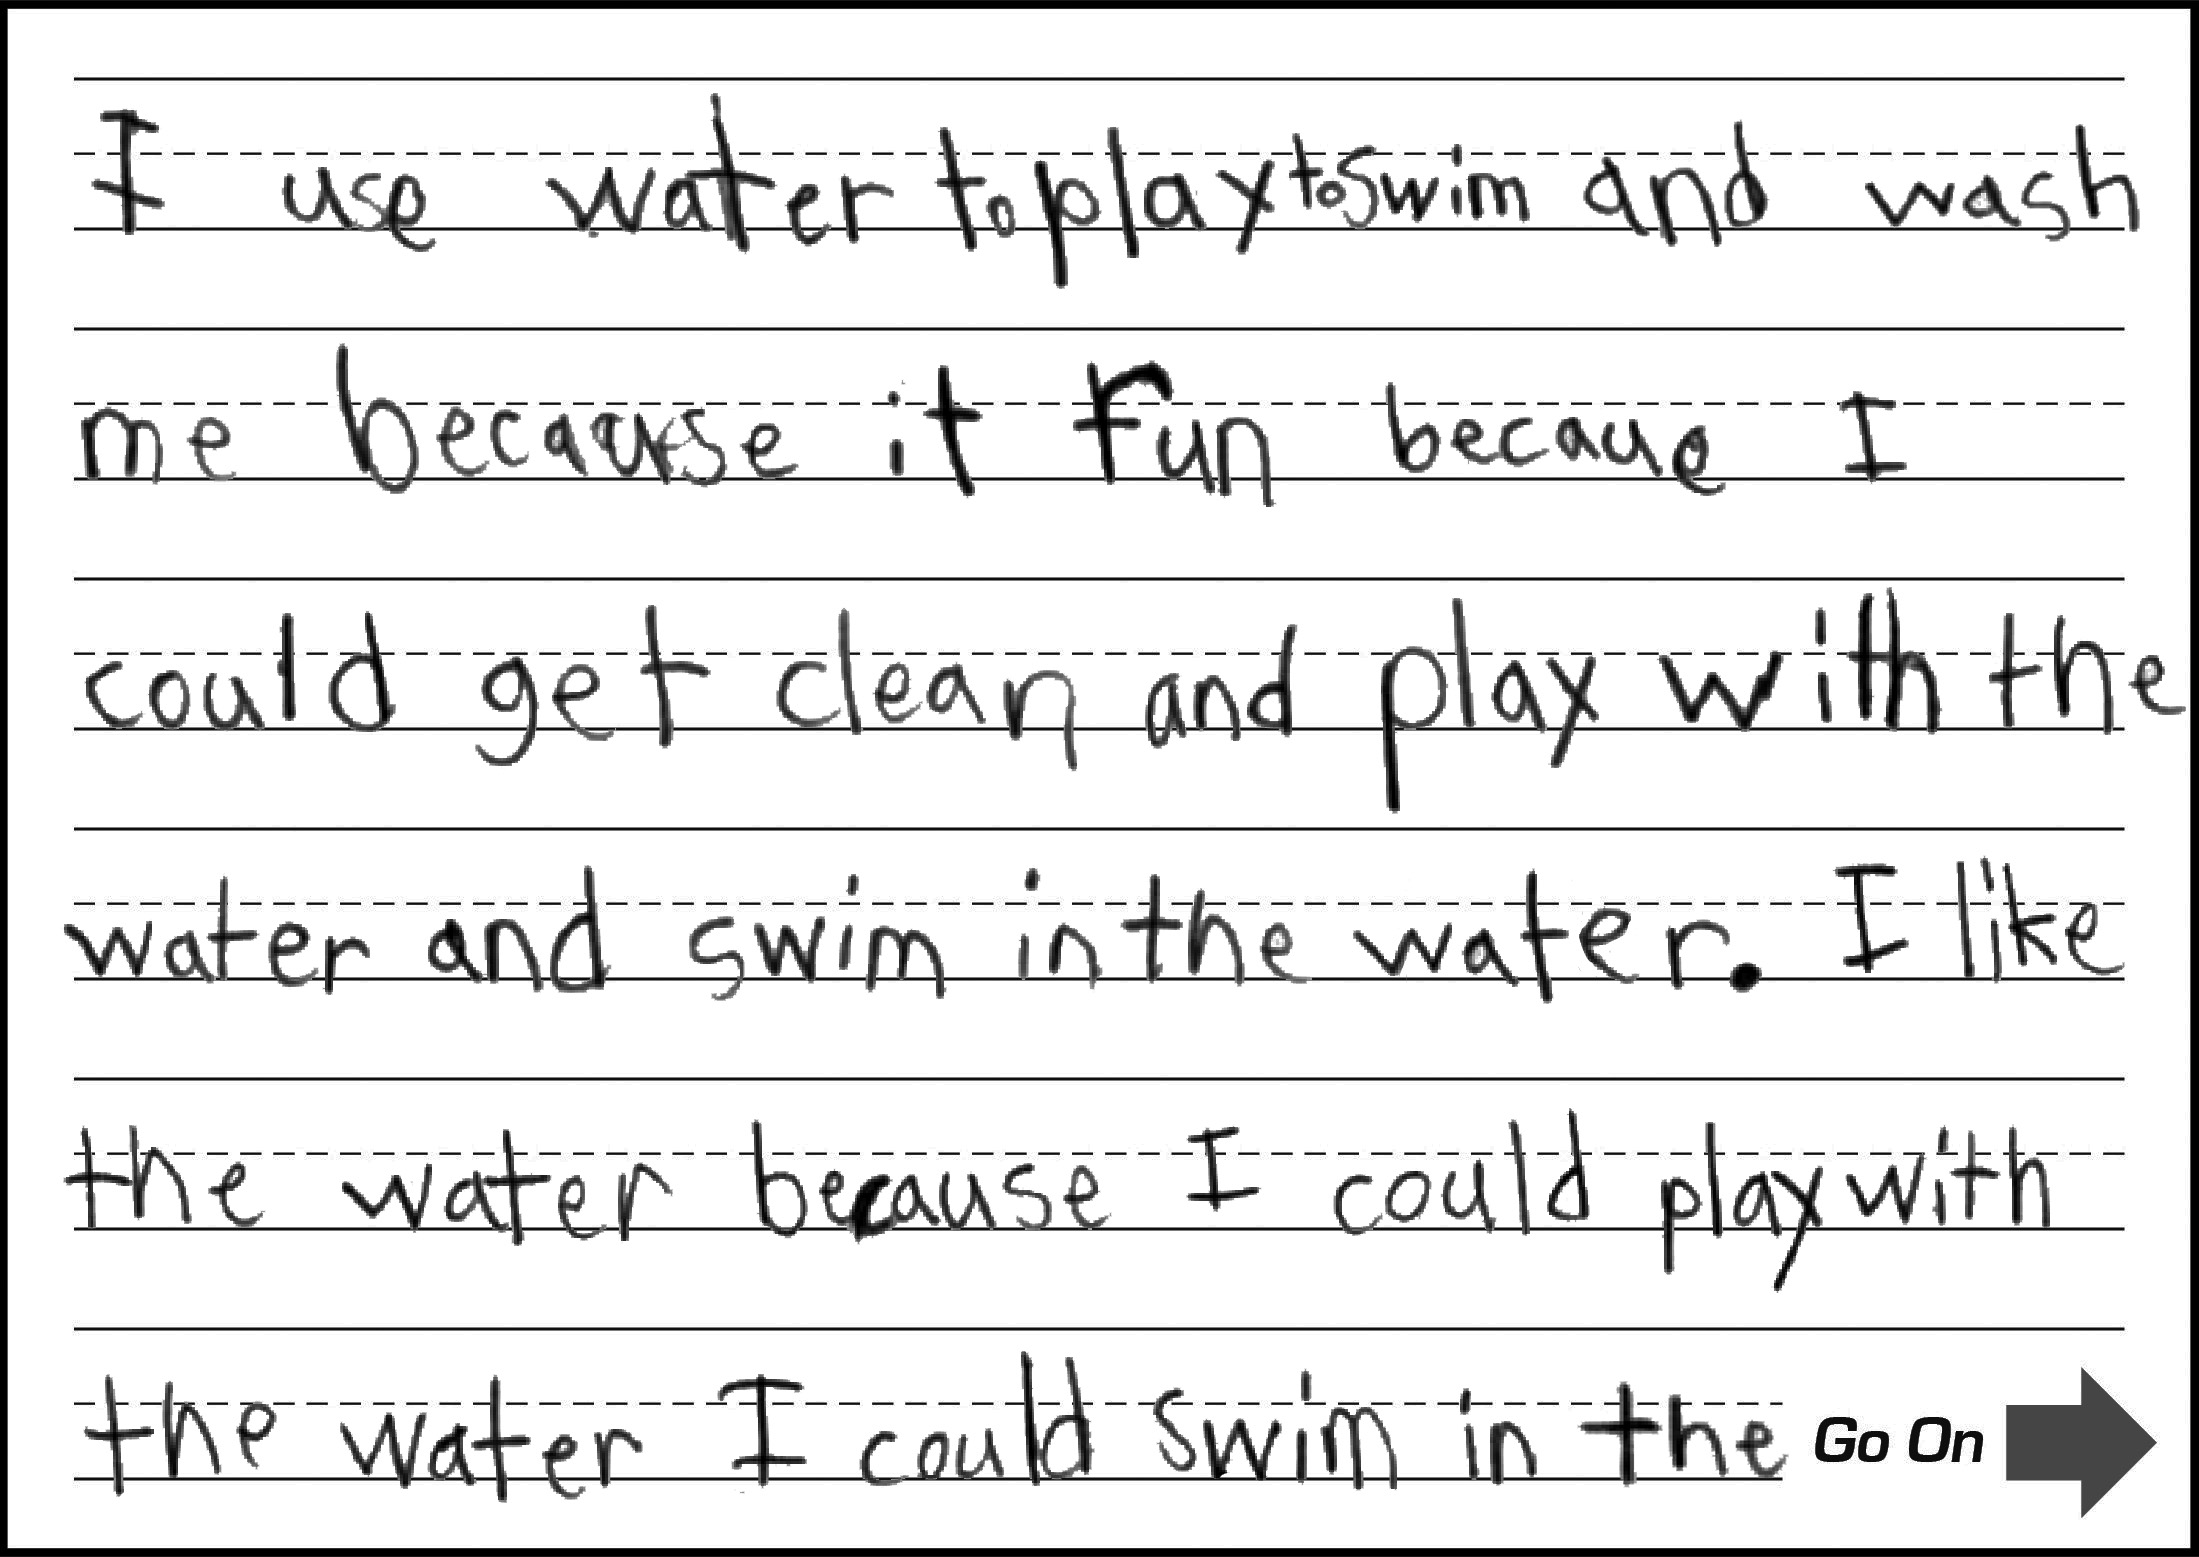 I use water to play to swim and wash
me because it fun becaue I
could get clean and play with the
water and swim in the water. I like
the water because I could play with
the water I could swim in the
Go On